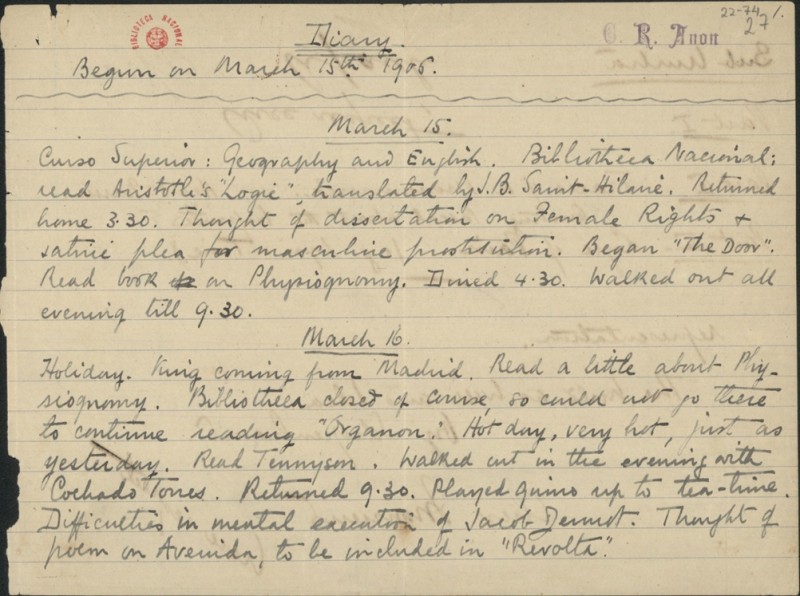 22-74/1.
27
BIBLIOTECA NACIONAL
C. R. Anon
Diary.
Begun on March 15th 1906.
March 15.
Curso Superior: Geography and English. Bibliotheca Nacional;
read Aristotle's "Logic", translated by J.B. Saint-Hilaire. Returned
home 3.30. Thought of dissertation on Female Rights &
satiric plea for masculine prostitution. Began "The Door".
Read book on Physiognomy. Dined 4.30. Walked out all
evening till 9.30.
March 16.
Holiday. King coming from Madrid. Read a little about Phy-
siognomy. Bibliotheca closed of course, so could not go there
to continue reading "Organon". Hot day, very hot, just as
yesterday. Read Tennyson. Walked out in the evening with
Cochado Torres. Returned 9.30. Played quino up to tea-time.
Difficulties in mental execution of Jacob Dermot. Thought of
poem on Avenida, to be included in "Revolta".